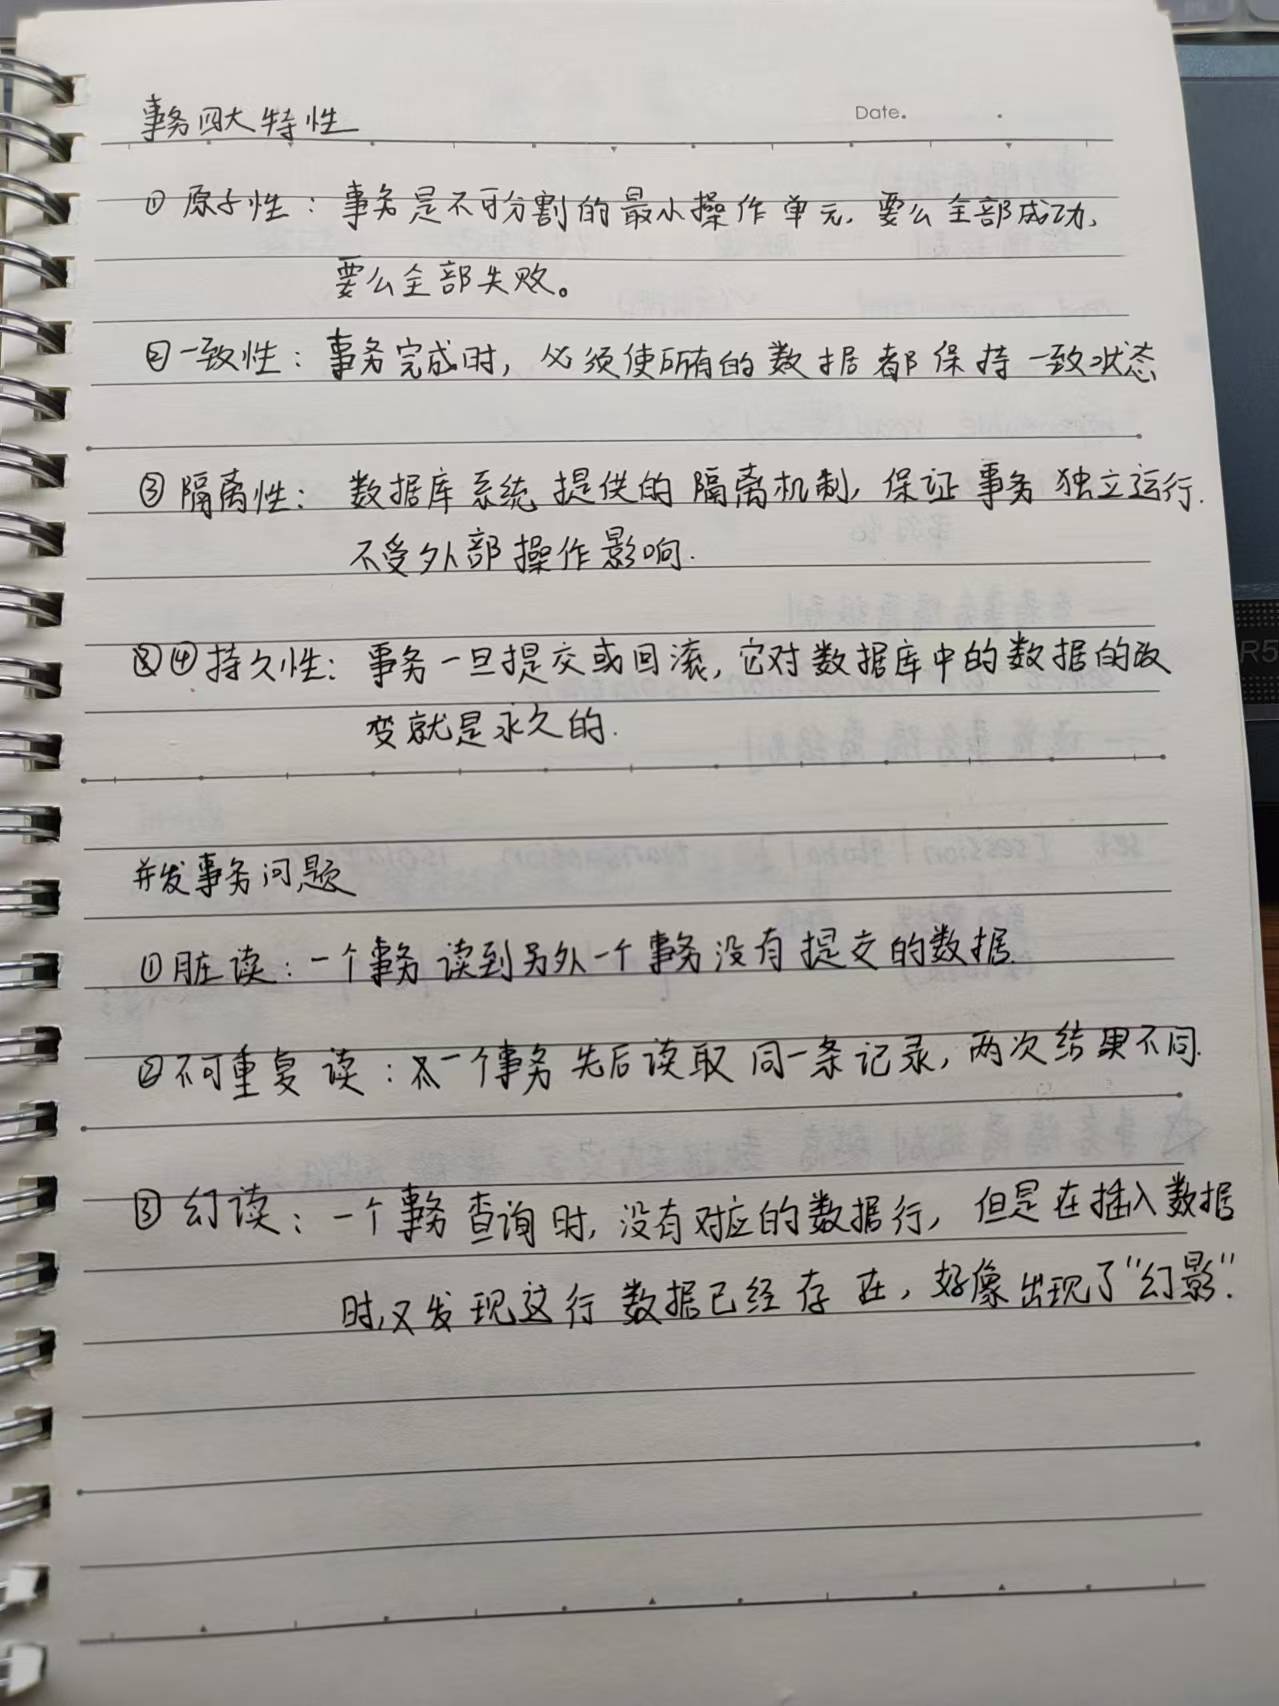 Date.
事务四大特性
① 原子性：事务是不可分割的最小操作单元. 要么全部成功,
要么全部失败。
② 一致性：事务完成时, 必须使所有的数据都保持一致状态
③ 隔离性：数据库系统提供的隔离机制, 保证事务独立运行.
不受外部操作影响.
④ 持久性：事务一旦提交或回滚, 它对数据库中的数据的改
变就是永久的.
并发事务问题
① 脏读：一个事务读到另外一个事务没有提交的数据.
② 不可重复读：一个事务先后读取同一条记录, 两次结果不同.
③ 幻读：一个事务查询时, 没有对应的数据行, 但是在插入数据
时,又发现这行数据已经存在, 好像出现了"幻影".